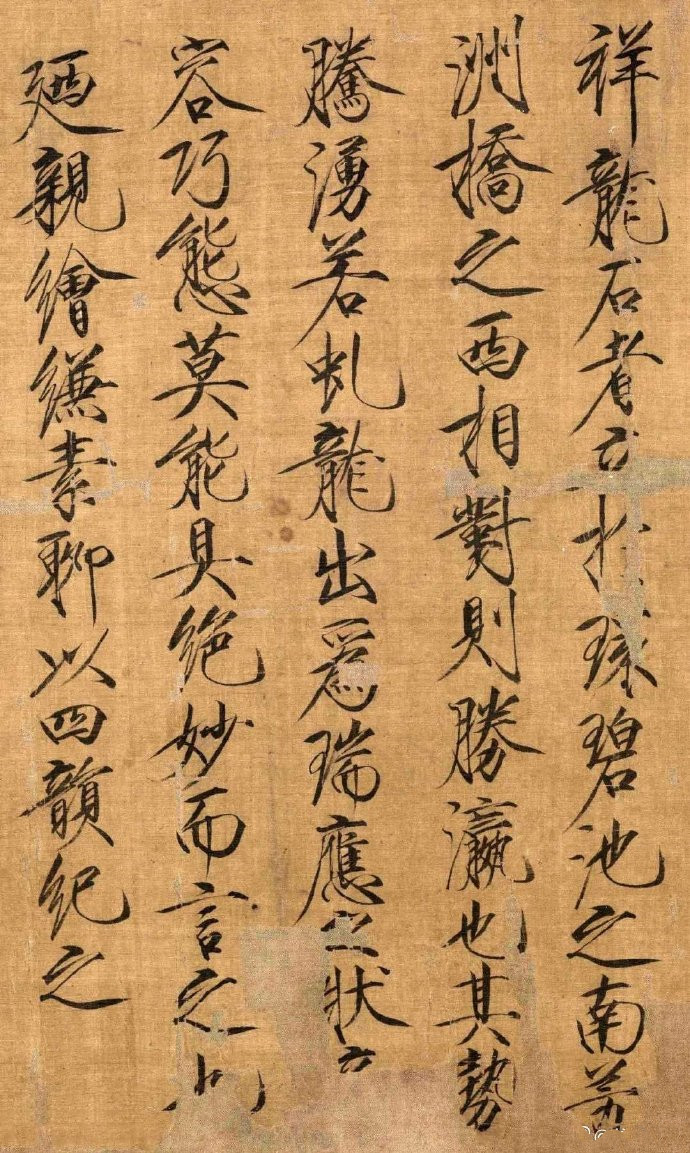 祥龍石者立於環碧池之南芳
洲橋之西相對則勝瀛也其勢
騰湧若虬龍出爲瑞應之狀
容巧態莫能具絶妙而言之
廼親繪縑素聊以四韻紀之